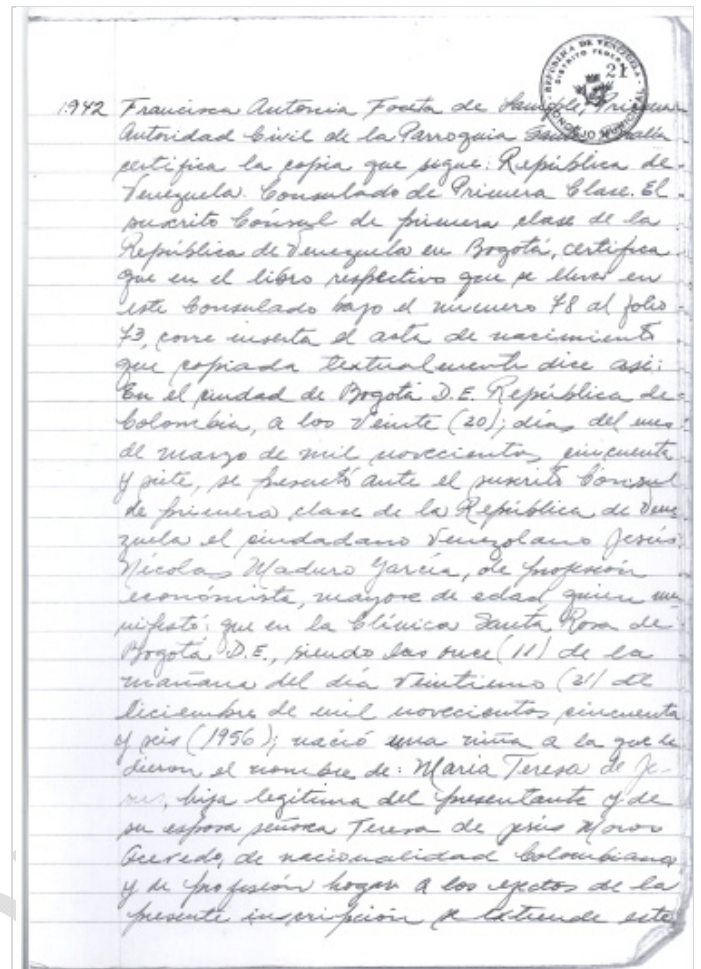 REPUBLICA DE VENEZUELA
DISTRITO FEDERAL
CONCEJO MUNICIPAL
21
1942 Francisca Antonia de Primera
Autoridad Civil de la Parroquia Santa
certifica la copia que sigue: República de
Venezuela. Consulado de Primera Clase. El
suscrito Cónsul de primera clase de la
República de Venezuela en Bogotá, certifica
que en el libro respectivo que se lleva en
este Consulado bajo el número 78 al folio
73, corre inserta el acta de nacimiento
que copiada textualmente dice asi:
En el ciudad de Bogotá D.E. República de
Colombia, a los veinte (20); días del mes
de marzo de mil novecientos cincuenta
y siete, se presentó ante el suscrito Cónsul
de primera clase de la República de Vene
zuela el ciudadano venezolano Jesús
Nicolas Maduro García, de profesión
económista, mayore de edad, quien ma
nifestó: que en la Clínica Santa Rosa de
Bogotá D.E., siendo las once (11) de la
mañana del día veintiuno (21) de
diciembre de mil novecientos cincuenta
y seis (1956); nació una niña a la que le
dieron el nombre de: María Teresa de Je-
sus, hija legitima del presentante y de
su esposa señora Teresa de jesús Moros
Acevedo, de nacionalidad Colombiana
y de profesión hogar. A los efectos de la
presente inscripción se extiende este